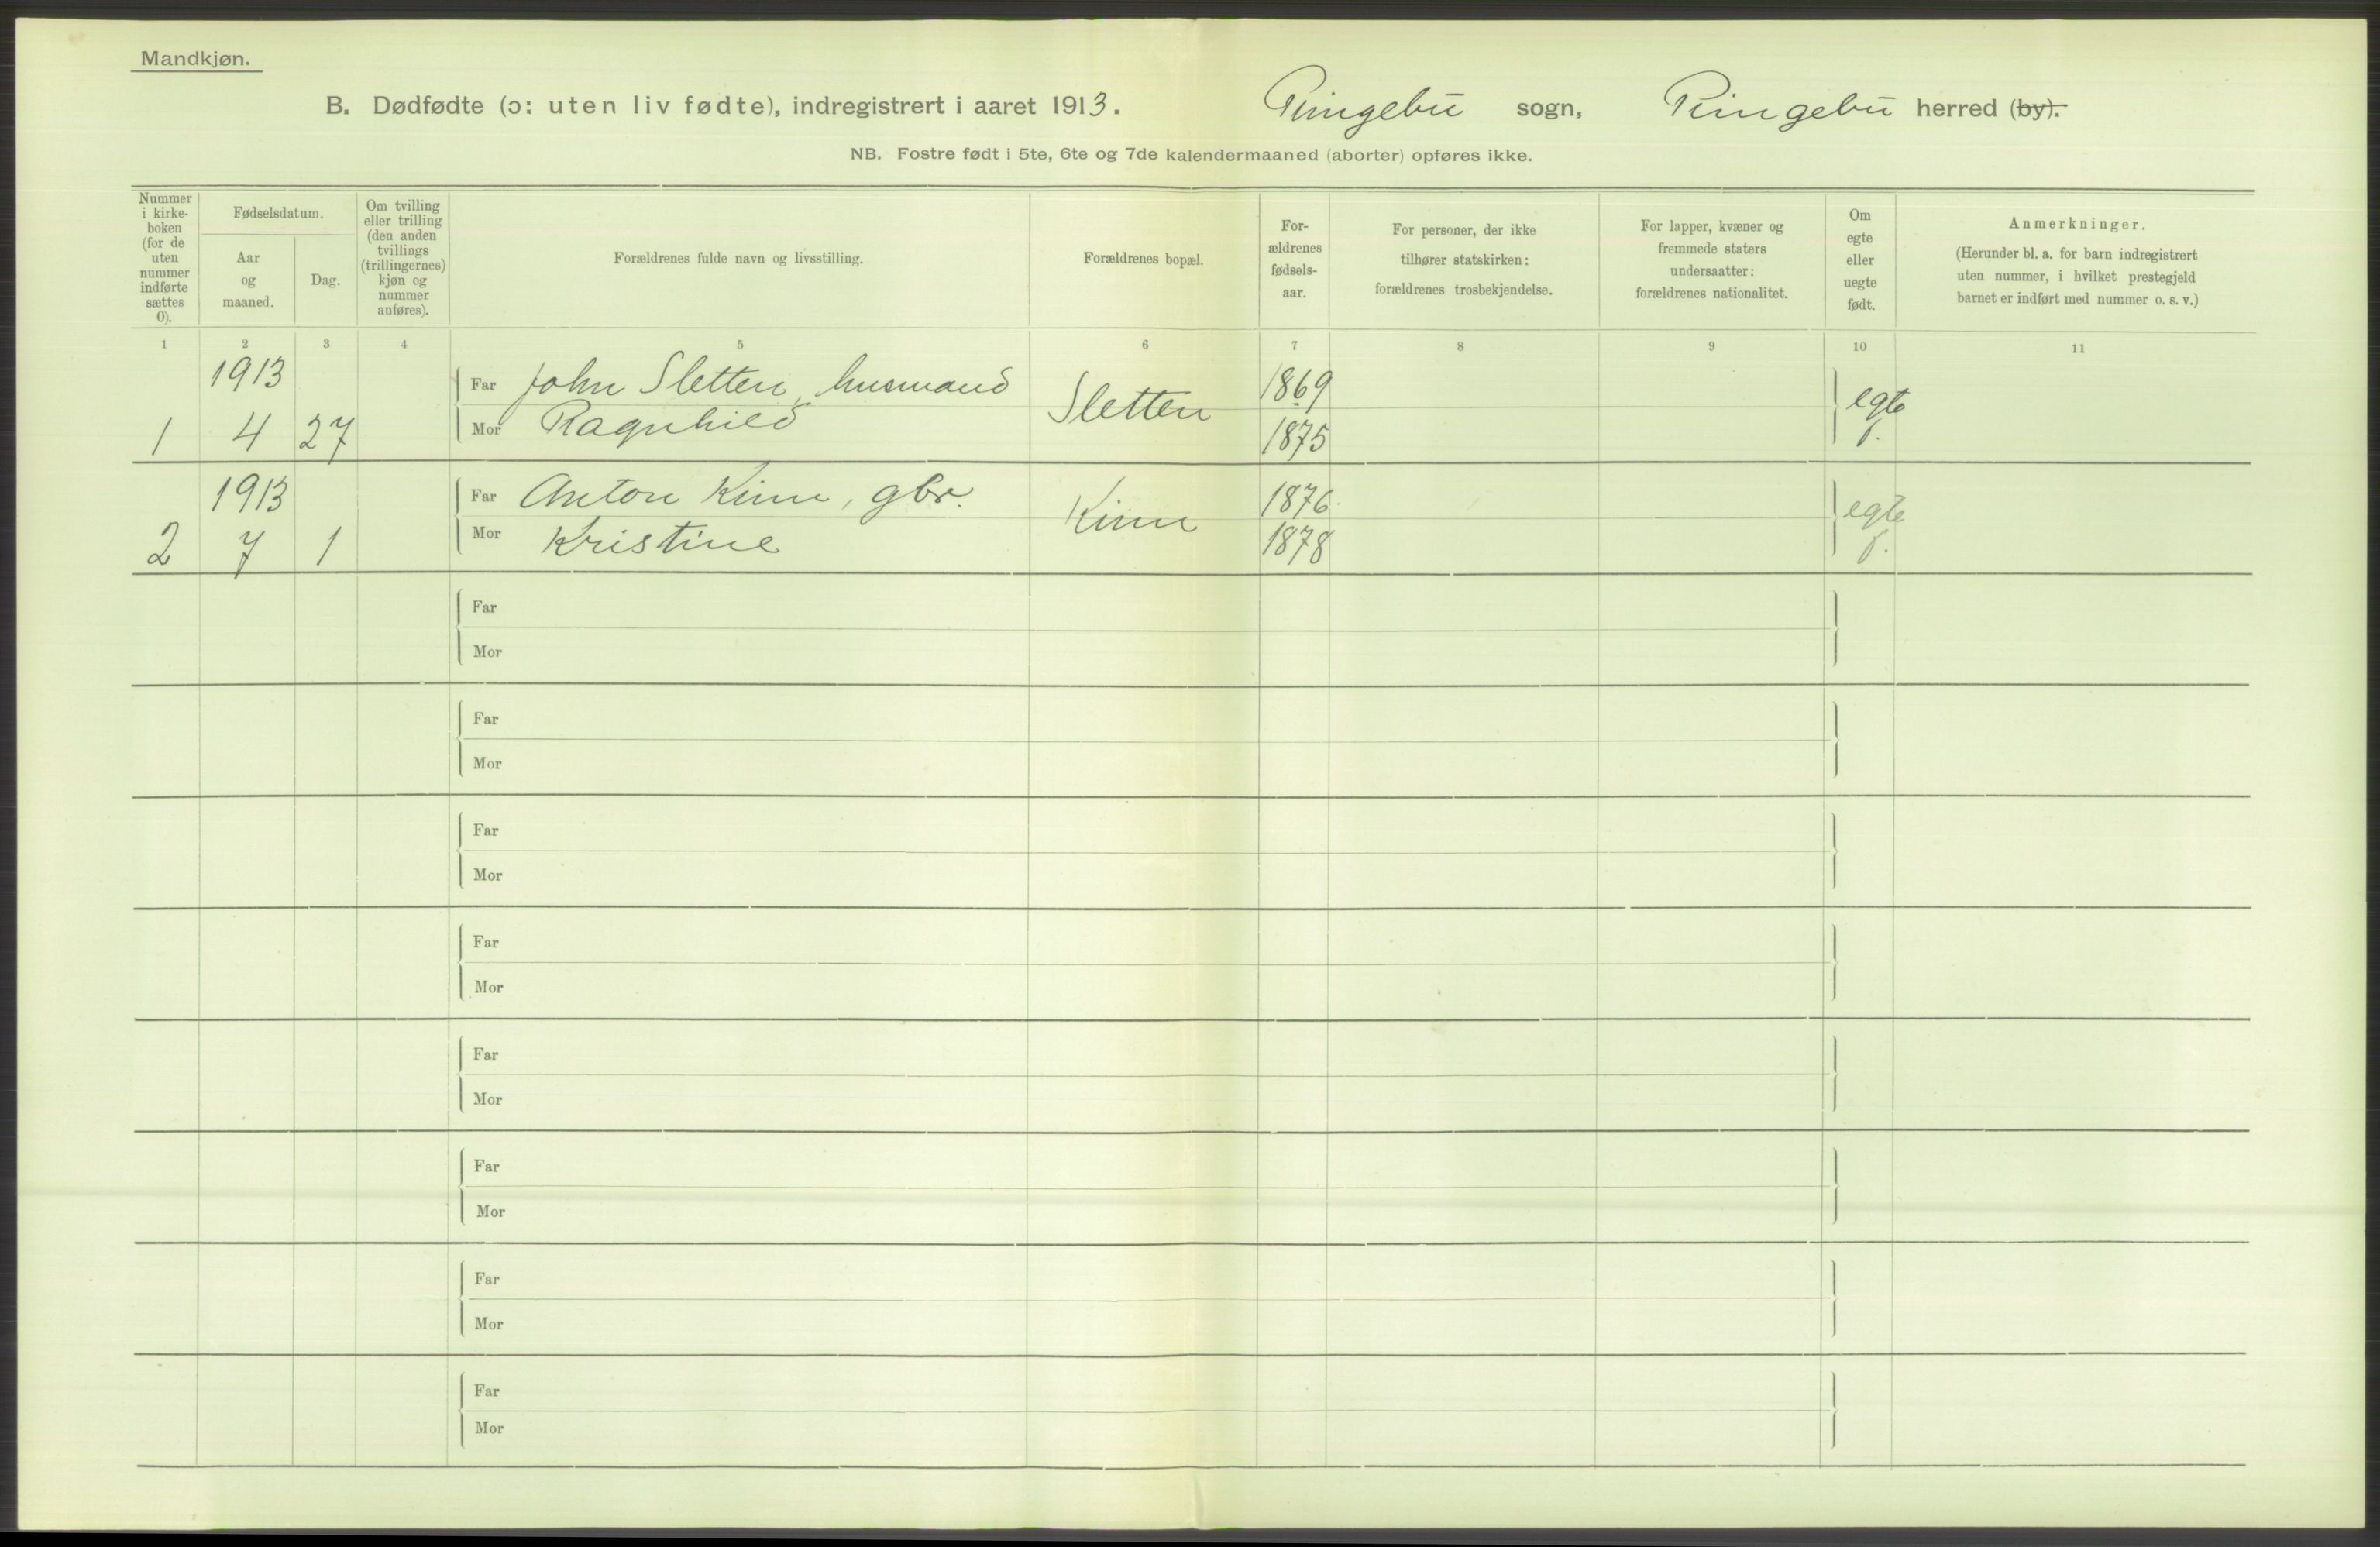 Mandkjøn.
B. Dødfødte (ɔ: uten liv fødte), indregistrert i aaret 1913. Ringebu sogn, Ringebu herred (by).
NB. Fostre født i 5te, 6te og 7de kalendermaaned (aborter) opføres ikke.
Nummer i kirke-boken (for de uten nummer indførte sættes 0).
Fødselsdatum.
Aar og maaned.
Dag.
Om tvilling eller trilling (den anden tvillings (trillingernes) kjøn og nummer anføres).
Forældrenes fulde navn og livsstilling.
Forældrenes bopæl.
For-ældrenes fødsels-aar.
For personer, der ikke tilhører statskirken: forældrenes trosbekjendelse.
For lapper, kvæner og fremmede staters undersaatter: forældrenes nationalitet.
Om egte eller uegte født.
Anmerkninger.
(Herunder bl. a. for barn indregistrert uten nummer, i hvilket prestegjeld barnet er indført med nummer o. s. v.)
1 2 3 4 5 6 7 8 9 10 11
1913 Far John Sletten, husmand Sletten 1869 egte
1 4 27 Mor Ragnhild 1875 f.
1913 Far Anton Kinn, gbr. Kinn 1876 egte
2 7 1 Mor Kristine 1878 f.
Far
Mor
Far
Mor
Far
Mor
Far
Mor
Far
Mor
Far
Mor
Far
Mor
Far
Mor